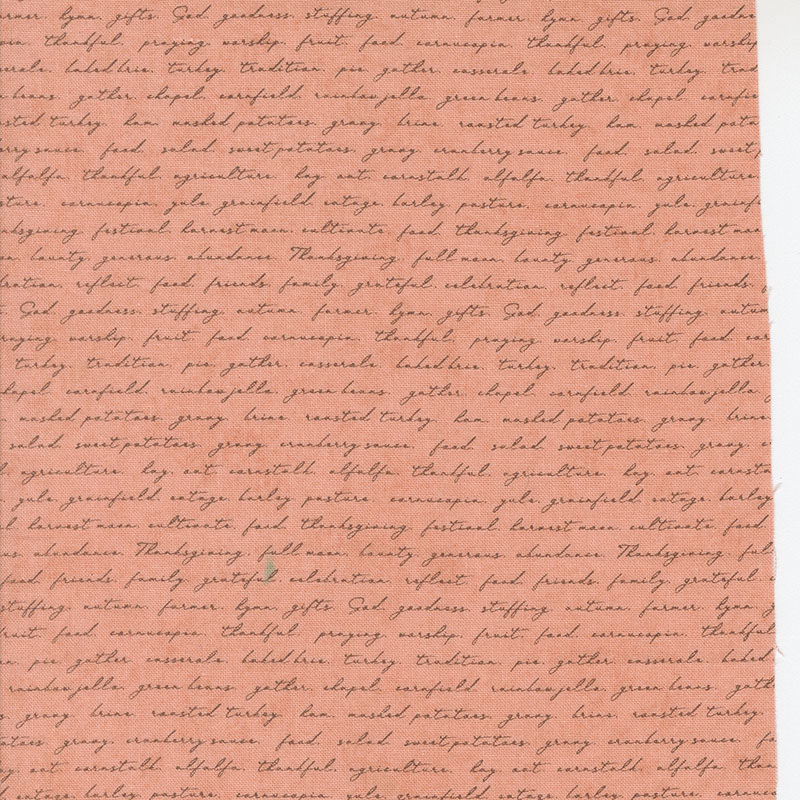 hymn. gifts. God. goodness. stuffing. autumn. farmer. hymn. gifts. God. goodne
thankful. praying. worship. fruit. food. cornucopia. thankful. praying. worship
baked brie. turkey. tradition. pie. gather. casserole. baked brie. turkey. trad
beans. gather. chapel. cornfield. rainbow jello. green beans. gather. chapel. cornfie
turkey. ham. mashed potatoes. gravy. brine. roasted turkey. ham. mashed pota
sauce. food. salad. sweet potatoes. gravy. cranberry sauce. food. salad. sweet
alfalfa. thankful. agriculture. hay. oat. cornstalk. alfalfa. thankful. agriculture.
cornucopia. yule. grainfield. cotage. barley. pasture. cornucopia. yule. grainf
festival. harvest moon. cultivate. food. thanksgiving. festival. harvest moo
bounty. generous. abundance. Thanksgiving. full moon. bounty. generous. abundance.
reflect. food. friends. family. grateful. celebration. reflect. food. friends.
God. goodness. stuffing. autumn. farmer. hymn. gifts. God. goodness. stuffing. autum
worship. fruit. food. cornucopia. thankful. praying. worship. fruit. food. cor
turkey. tradition. pie. gather. casserole. baked brie. turkey. tradition. pie. gather.
cornfield. rainbow jello. green beans. gather. chapel. cornfield. rainbow jello.
mashed potatoes. gravy. brine. roasted turkey. ham. mashed potatoes. gravy. brine.
salad. sweet potatoes. gravy. cranberry sauce. food. salad. sweet potatoes. gravy. c
agriculture. hay. oat. cornstalk. alfalfa. thankful. agriculture. hay. oat. cornsta
yule. grainfield. cotage. barley. pasture. cornucopia. yule. grainfield. cotage. barley
harvest moon. cultivate. food. thanksgiving. festival. harvest moon. cultivate. food
abundance. Thanksgiving. full moon. bounty. generous. abundance. Thanksgiving. ful
food. friends. family. grateful. celebration. reflect. food. friends. family. grateful. c
stuffing. autumn. farmer. hymn. gifts. God. goodness. stuffing. autumn. farmer. hymn. g
fruit. food. cornucopia. thankful. praying. worship. fruit. food. cornucopia. thankful
pie. gather. casserole. baked brie. turkey. tradition. pie. gather. casserole. baked
rainbow jello. green beans. gather. chapel. cornfield. rainbow jello. green beans. gath
gravy. brine. roasted turkey. ham. mashed potatoes. gravy. brine. roasted turkey.
gravy. cranberry sauce. food. salad. sweet potatoes. gravy. cranberry sauce. fo
oat. cornstalk. alfalfa. thankful. agriculture. hay. oat. cornstalk. alfalfa. than
cotage. barley. pasture. cornucopia. yule. grainfield. cotage. barley. pasture. cor